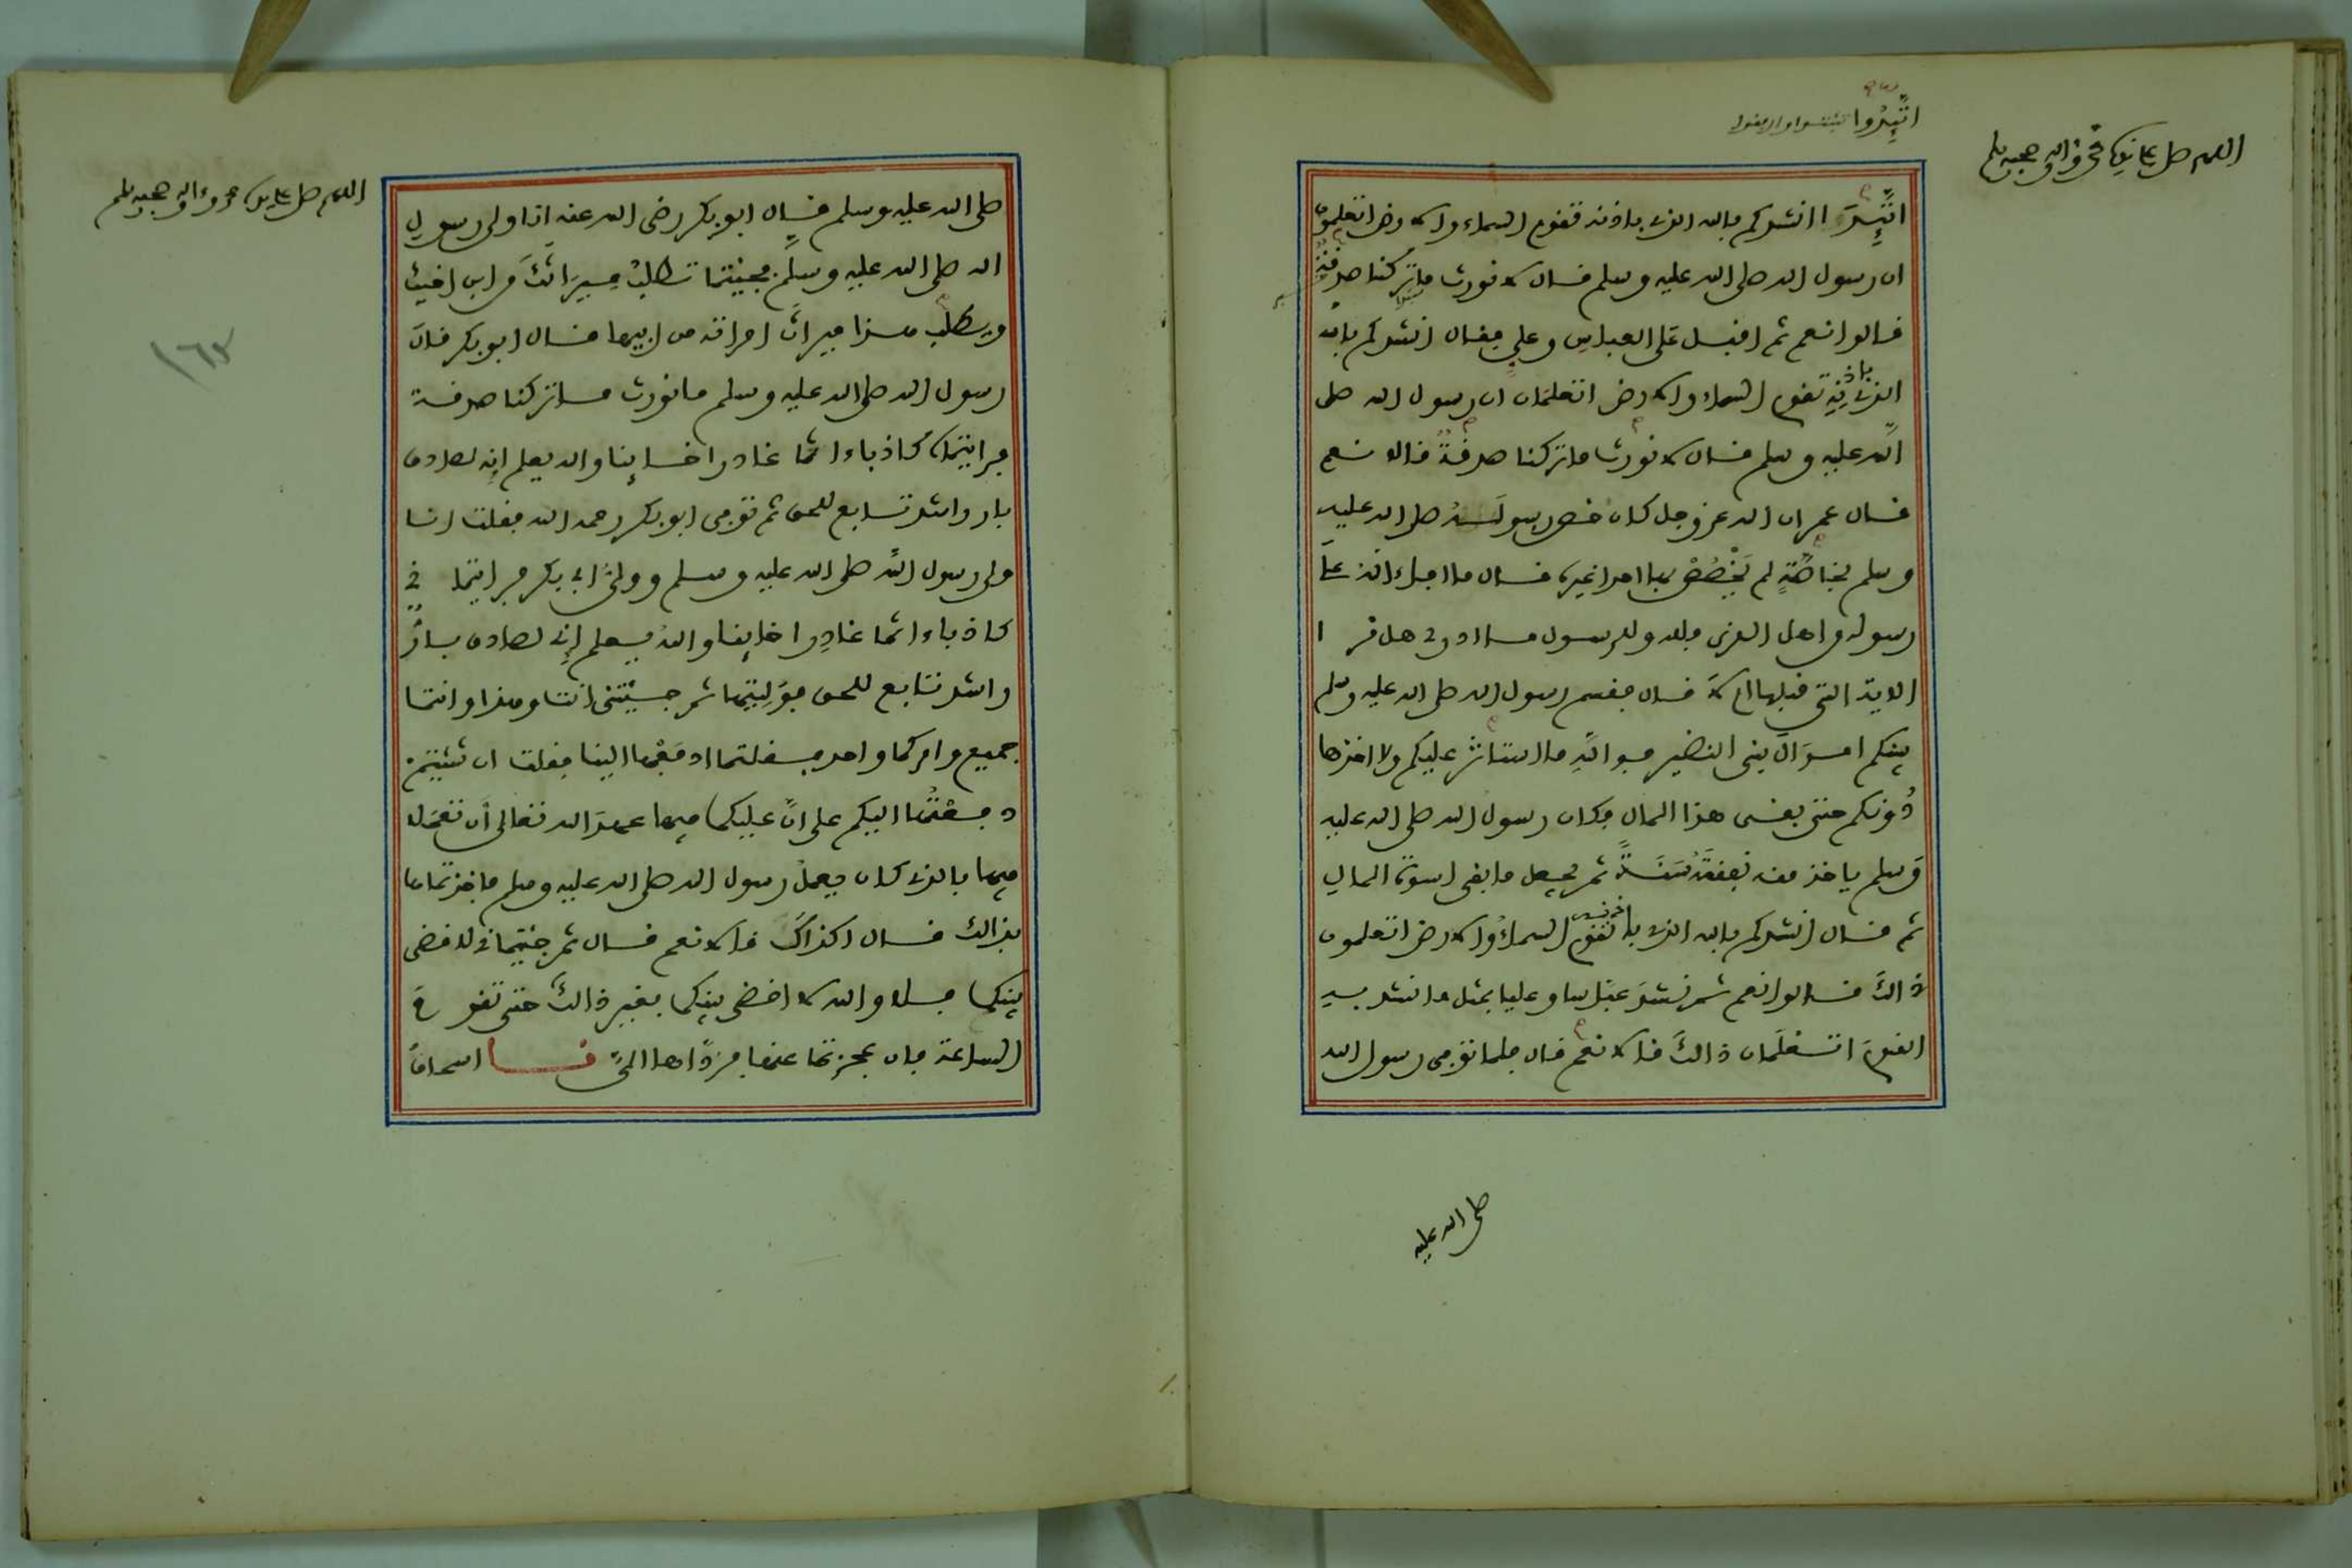 اللهم صل على سيدنا محمد وءاله وصحبه وسلم
اتَّئِدُوا
اتَّئِدَا انشدكم بالله الذي باذنه تقوم السماء والارض اتعلمون
ان رسول الله صلى الله عليه وسلم قال لا نورث ما تركنا صدقةٌ
قالوا نعم ثم اقبل على العباس وعلي فقال انشدكم بالله
الذي باذنه تقوم السماء والارض اتعلمان ان رسول الله صلى
الله عليه وسلم قال لا نورث ما تركنا صدقةٌ قالا نعم
قال عمر ان الله عز وجل كان خص رسوله صلى الله عليه
وسلم بخاصَّةٍ لم يَخْصُصْ بها احدا غيره قال ما افاء الله على
رسوله من اهل القرى فلله وللرسول ما ادري هل قرا
الاية التي قبلها ام لا قال فقسم رسول الله صلى الله عليه وسلم
بينكم اموال بني النضير فوالله ما استاثر عليكم ولا اخذها
دُونكم حتى بقى هذا المال فكان رسول الله صلى الله عليه
وسلم ياخذ منه نفقة سَنَةٍ ثم يجعل ما بقى اسوة المال
ثم قال انشدكم بالله الذي باذنه تقوم السماء والارض اتعلمون
ذالك قالوا نعم ثم نشد عباسا وعليا بمثل ما نشد به
القوم اتعلمان ذالك قالا نعم قال فلما توفى رسول الله
صلى الله عليه
اللهم صل على سيدنا محمد وءاله وصحبه وسلم
صلى الله عليه وسلم قال ابو بكر رضى الله عنه انا ولى رسول
الله صلى الله عليه وسلم فجئتما تطلب ميراثك من ابن اخيك
ويطلب هذا ميراث امراته من ابيها فقال ابو بكر قال
رسول الله صلى الله عليه وسلم ما نورث ما تركنا صدقة
فرايتماه كاذبا ءاثما غادرا خاينا والله يعلم انه لصادق
بار راشد تابع للحق ثم توفى ابو بكر رحمه الله فقلت انا
ولى رسول الله صلى الله عليه وسلم وولىّ ابى بكر فرايتمانى
كاذبا ءاثما غادرا خاينا والله يعلم اني لصادق بارٌّ
راشد تابع للحق فوَلِيتها ثم جئتنى انت وهذا وانتما
جميع وامركما واحد فقلتما ادفعها الينا فقلت ان شئتم
دفعتُها اليكم على انّ عليكما فيها عهد الله تعالى أن تعمَلا
فيها بالذي كان يعمل رسول الله صلى الله عليه وسلم فاخذتماها
بذالك قال اكذاك قالا نعم قال ثم جئتمانى لاقضى
بينكما فلا والله لا اقضى بينكما بغير ذالك حتى تقوم
الساعة فان عجزتما عنها فردَّاها الىّ نا اسحاق
١٦٢